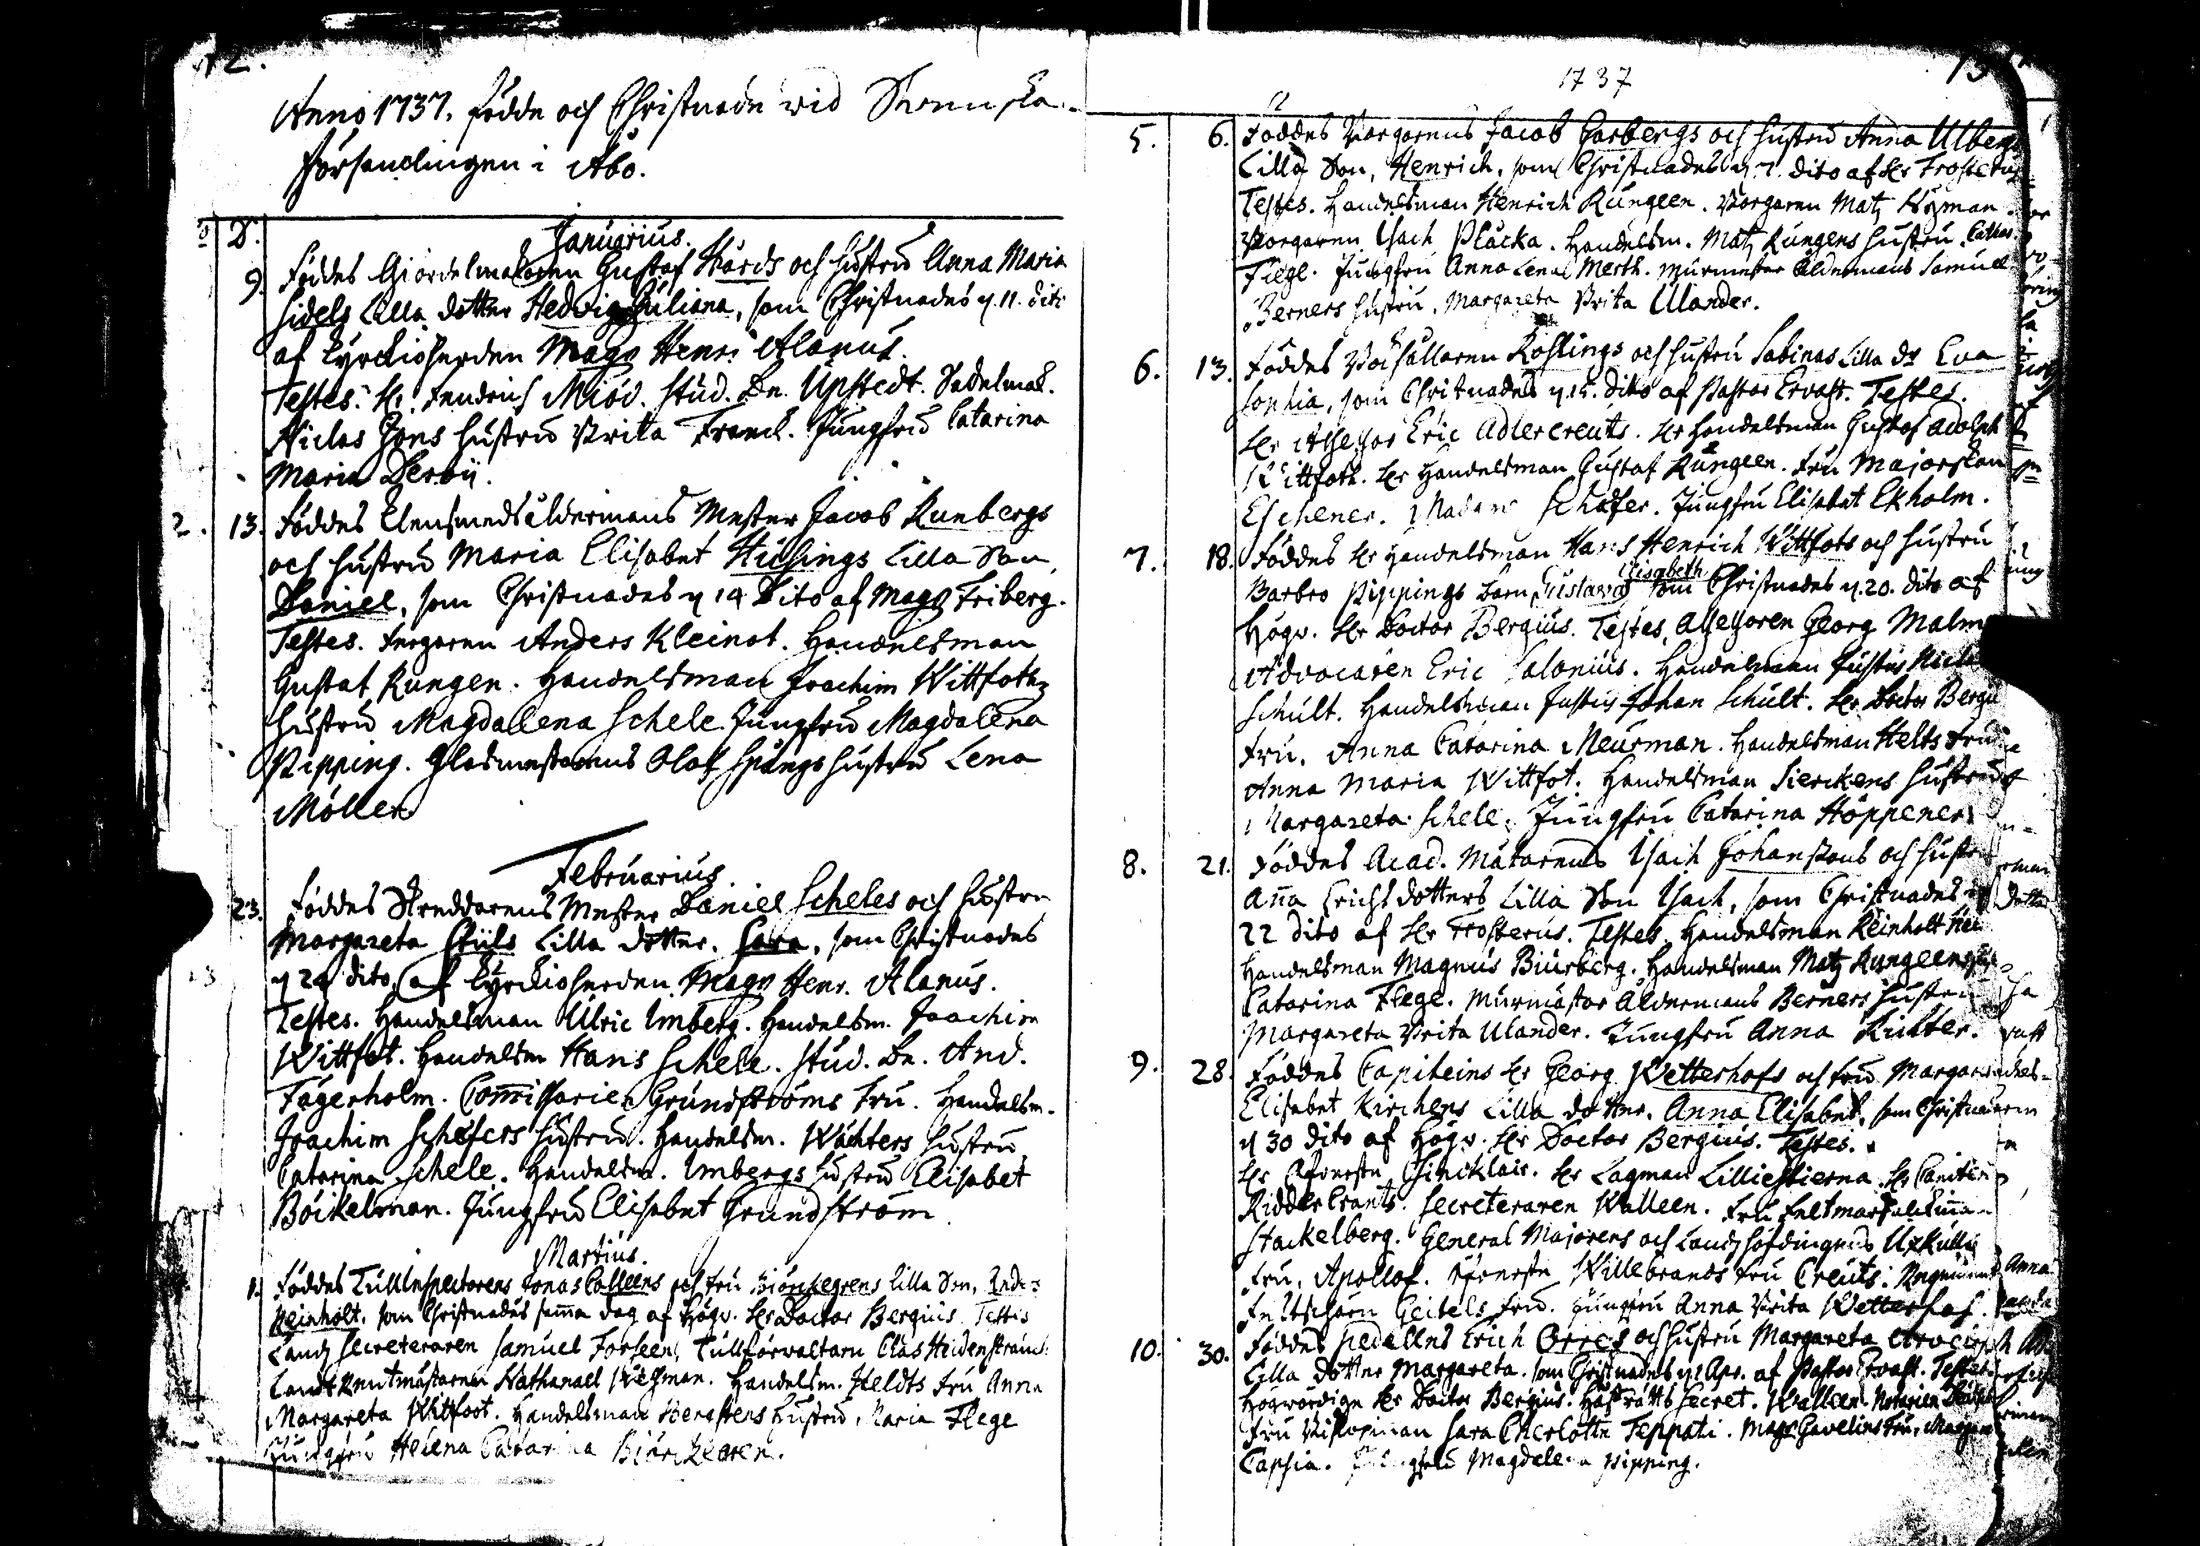 12.
Anno 1737. födde och Christnade wid Swenska
församlingen i Åbo.
D.
Januarius.
9. Föddes Giördelmakaren Gustaf Hårds och hustru Anna Maria
Sidels Lilla dotter Hedvig Juliana, som Christnades d. 11. dito
af Kyrckioherden Mag. Henr. Alanus.
Testes. Hr. Fendrich Miöd. Stud. Dn. Upstedt. Sadelmak.
Niclas Jöns hustru Brita Franck. Jungfru Catarina
Maria Derbÿ.
2. 13. Föddes Clensmeds åldermans Mester Jacob Runbergs
och hustru Maria Elisabet Hisings Lilla Son,
Daniel, som Christnades d. 14 Dito af Mag. Friberg.
Testes. Fergaren Anders Kleinot. Handelsman
Gustaf Rungen. Handelsman Joachim Wittfotz
hustru Magdalena Schele. Jungfru Magdalena
Pipping. Glasmesterens Olof Spångs hustru Lena
Möller.
Februarius.
23. Föddes Skreddarens Mester Daniel Scheles och hustru
Margareta Stüls Lilla dotter. Sara, som Christnades
d. 24 dito, af Kyrckioherden Mag. Henr. Alanus.
Testes. Handelsman Ulric Imberg. Handelsm. Joachim
Wittfot. Handelsm Hans Schele. Stud. Dn. And.
Fagerholm. Commissarien Grundströms Fru. Handelsm.
Joachim Schefers hustru. Handelsm. Wächters hustru
Catarina Schele. Handelsm. Imbergs hustru Elisabet
Böckelman. Jungfru Elisabet Grundström.
Martius.
1. Föddes Tullinspectorens Jonas Calleens och Fru Biörkegrens lilla Son,
Reinholt, som Christnades samma dag af Högv. Hr Doctor Bergius. Testes
Landz Secreteraren Samuel Forseen, Tullförvaltarn Clas Heidenstrauch
Landt Rentmästaren Nathanael Wichman. Handelsm. Heldts Fru Anna
Margareta Wittfoot. Handelsman Bergstens hustru, Maria Flege
Jungfru Helena Catarina Biörkegren.
1737
13
5. 6. Föddes Borgarens Jacob Garbergs och hustru Anna Ulbergs
Lilla Son, Henrich, som Christnades d. 7. dito af Hr Frosterus
Testes. Handelsman Henrich Rungeen. Borgaren Matz Nyman.
Borgaren Isach Placka. Handelsm. Matz Rungens hustru Cathar.
Flege. Jungfru Anna Lena Merth. Murmester Åldermans Samuel
Berners hustru, Margareta Brita Ulander.
6. 13. Föddes Bockhållaren Rohlings och hustru Sabinas Lilla dr Eva
Sophia, som Christnades d. 15. dito af Pastor Ervast. Testes.
Hr Assessor Eric Adlercreuts. Hr Handelsman Gustaf Adolph
Wittfoth. Hr Handelsman Gustaf Rungeen. Fru Majorskan
Eschener. Madame Schäfer. Jungfru Elisabet Ekholm.
7. 18. Föddes Hr Handelsman Hans Henrich Wittfots och hustru
Barbro Pippings barn Gustava Elisabeth som Christnades d. 20. dito af
Högv. Hr Doctor Bergius. Testes, Assessoren Georg Malm
Advocaten Eric Salonius. Handelsman Justus
Schult. Handelsman Justus Johan Schult. Hr Doctor Bergii
Fru, Anna Catarina Meurman. Handelsman Helts Fru
Anna Maria Wittfot. Handelsman Sierckens hustru
Margareta Schele. Jungfru Catarina Höppener.
8. 21. Föddes Acad. Mätarens Isach Johanssons och hustru
Anna Erichsdotters Lilla Son Isach, som Christnades
22 dito af Hr Frosterus. Testes. Handelsman Reinholt
Handelsman Magnus Biurberg. Handelsman Matz Rungeens
Catarina Flege. Murmästar Åldermans Berners hustru
Margareta Brita Ulander. Jungfru Anna Richter.
9. 28. Föddes Capiteins Hr Georg Wetterhofs och Fru Margareta
Elisabet Kirchens Lilla dotter, Anna Elisabet, som Christnades
d. 30 dito af Högv. Hr Doctor Bergius. Testes.
Hr Öfverste Sincklair. Hr Lagman Lilliestierna. Hr Capitein
Ridder Crants. Secreteraren Walleen. Fru
Stackelberg. General Majorens och Landzhöfdingens Uxkulls
Fru, Apollof. Öfverste Willebrands Fru Creuts.
Feltschärn Geitels Fru. Jungfru Anna Brita Wetterhof.
10. 30. Föddes Pedellens Erich Orres och hustru Margareta
Lilla Dotter Margareta, som Christnades d. 1 Apr. af Pastor Ervast. Testes
Högwördige Hr Doctor Bergius. Hofrätts Secret. Walleen. Notarien
Fru Biskopinnan Sara Charlotta Teppati. Mag. Gavelins Fru,
Capsia. Jungfru Magdelena Pipping.